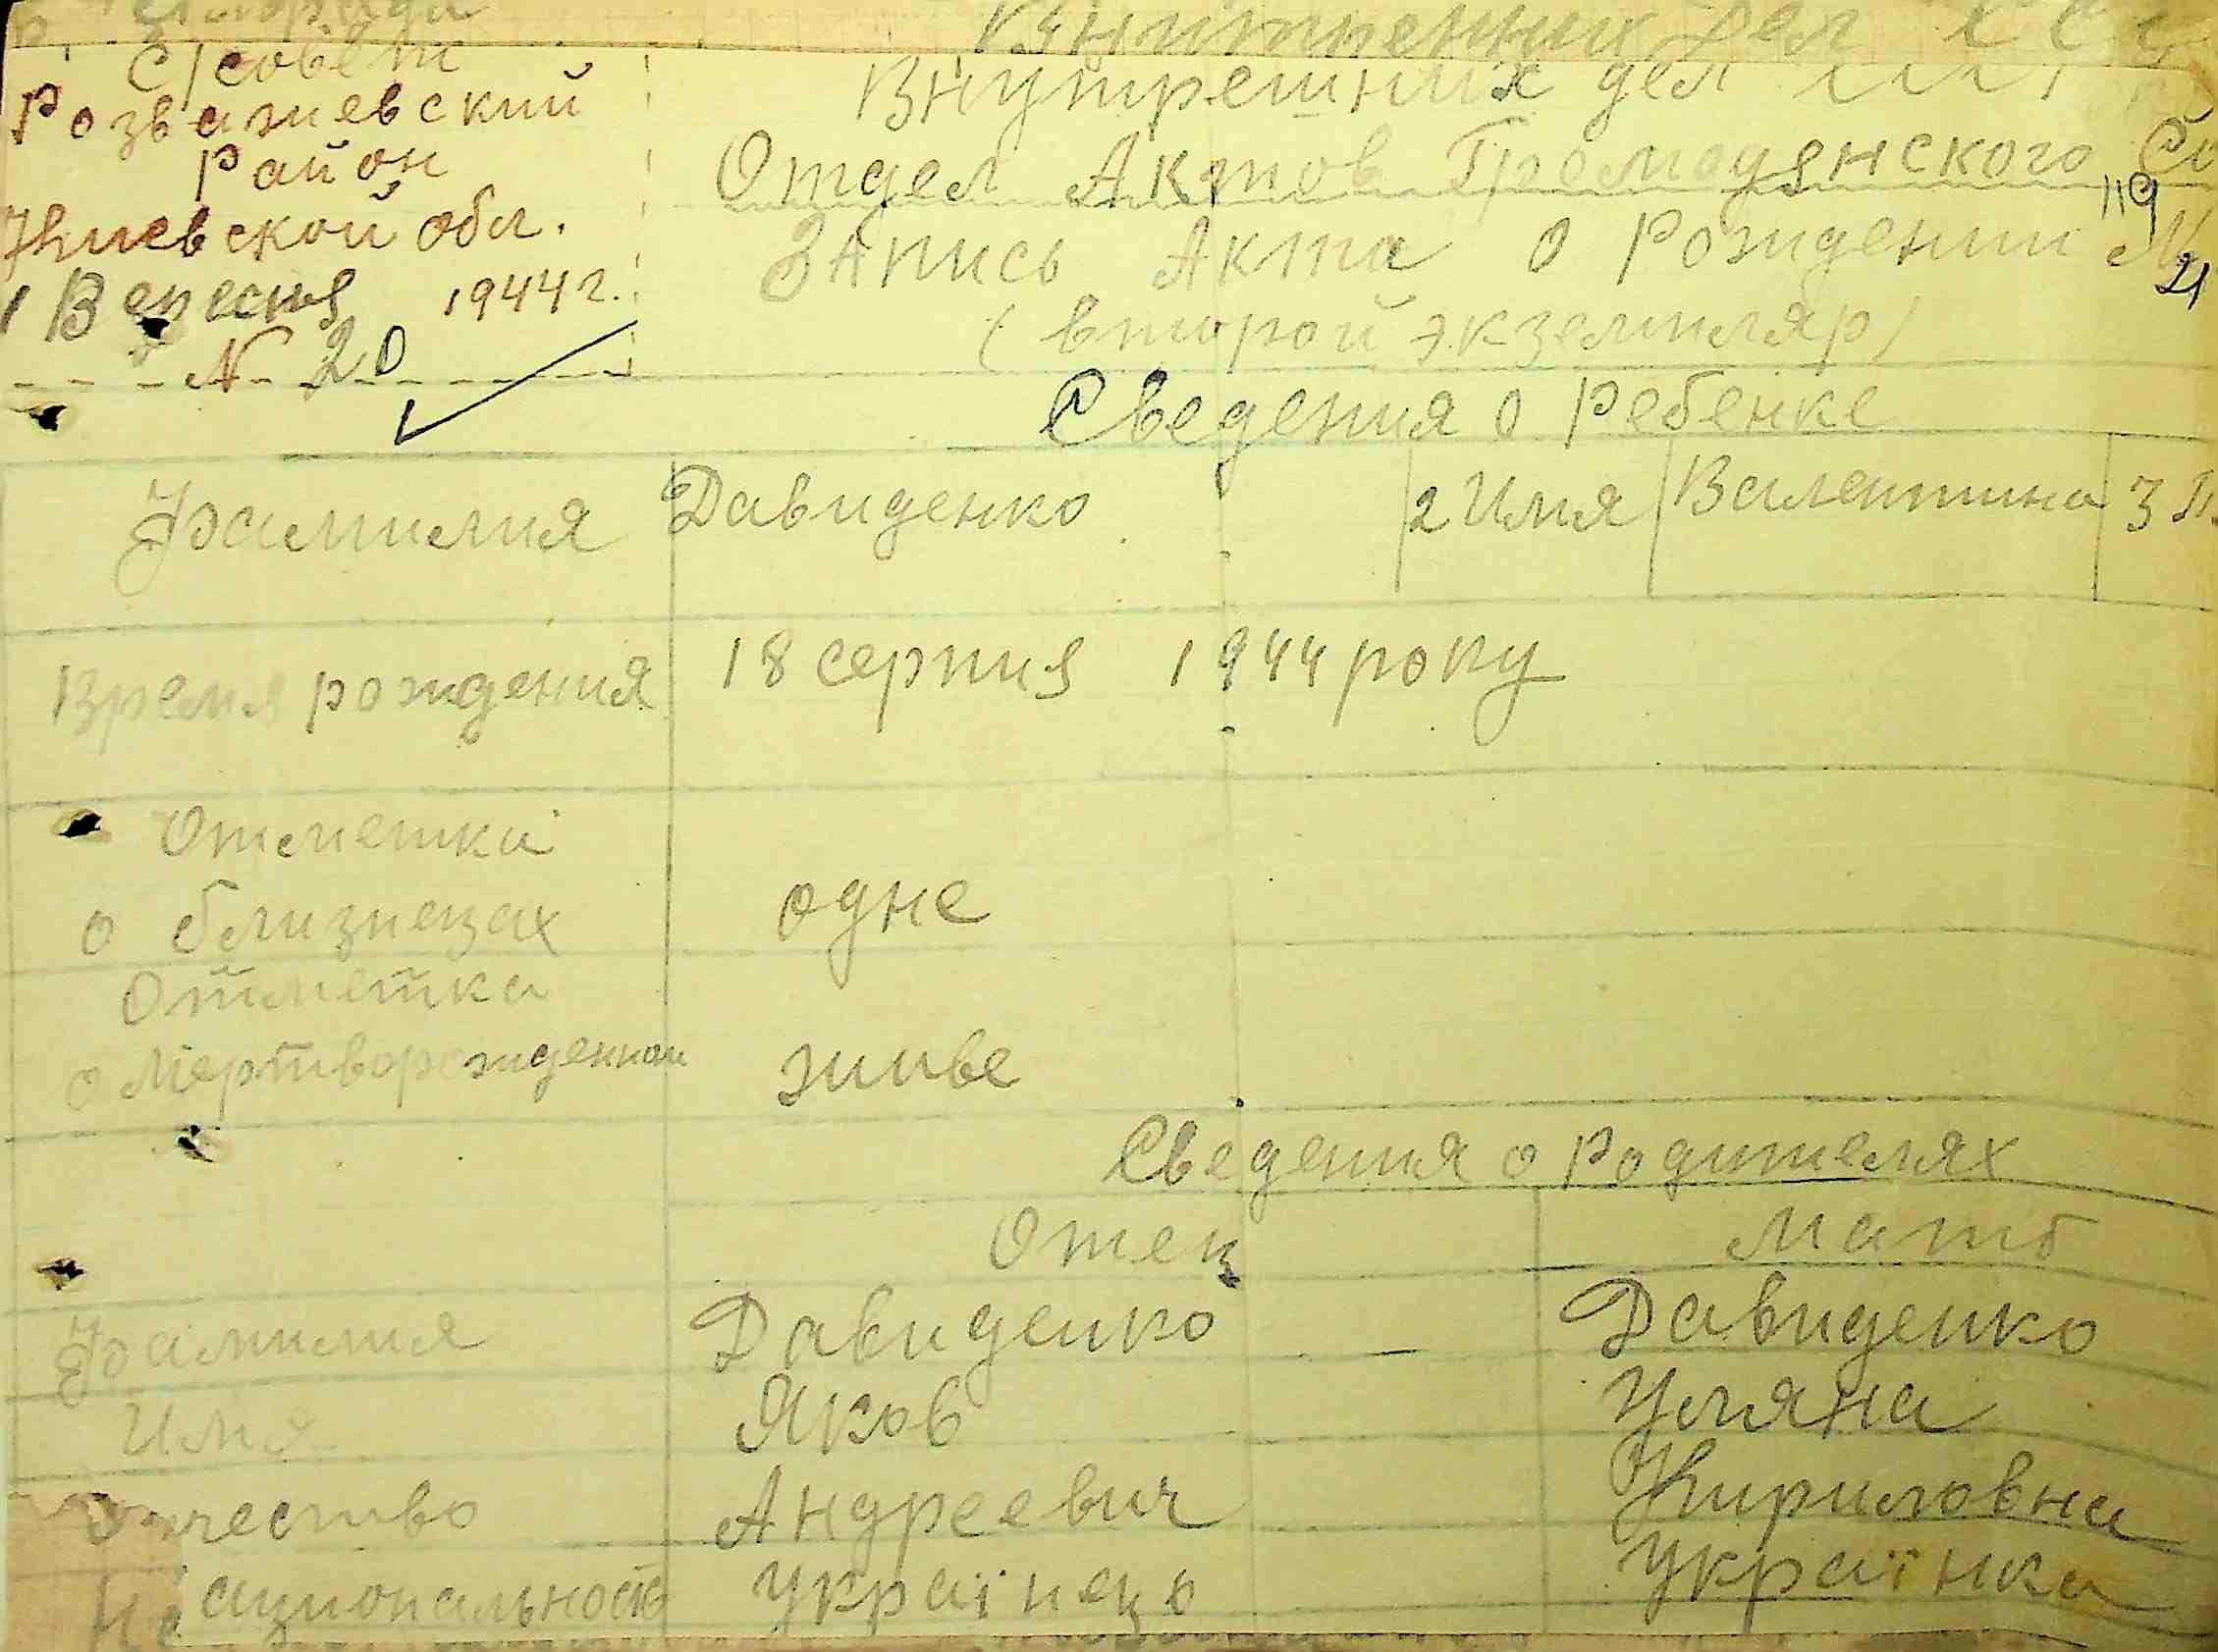 С/совет
Розважиевский
Район
Киевской обл.
1 Вересня 1944 г.
N 20
Внутренних дел
Внутрешних дел
Отдел Актов Громодянского Со
119
Запись Акта о Рождении №
21
(второй экземпляр)
Сведения о Ребенке
Фамилия Давиденко 2 Имя Валентина 3
Время рождения 18 серпня 1944 року
Отметка
о близнецах одне
Отметка
о Мертворожденном живе
Сведения о Родителях
Отец Мать
Фамилия Давиденко Давиденко
Имя Яков Уляна
Отчество Андреевич Кириловна
Национальность Українець Українка